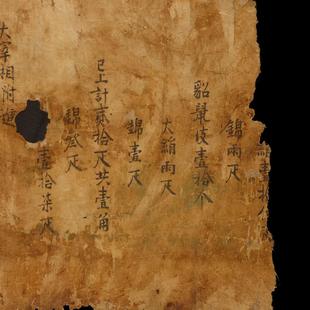 錦兩疋
貂皮壹拾个
大絹兩疋
錦壹疋
已上計貳拾疋共壹角
錦貳疋
壹拾柒疋
大宰相附